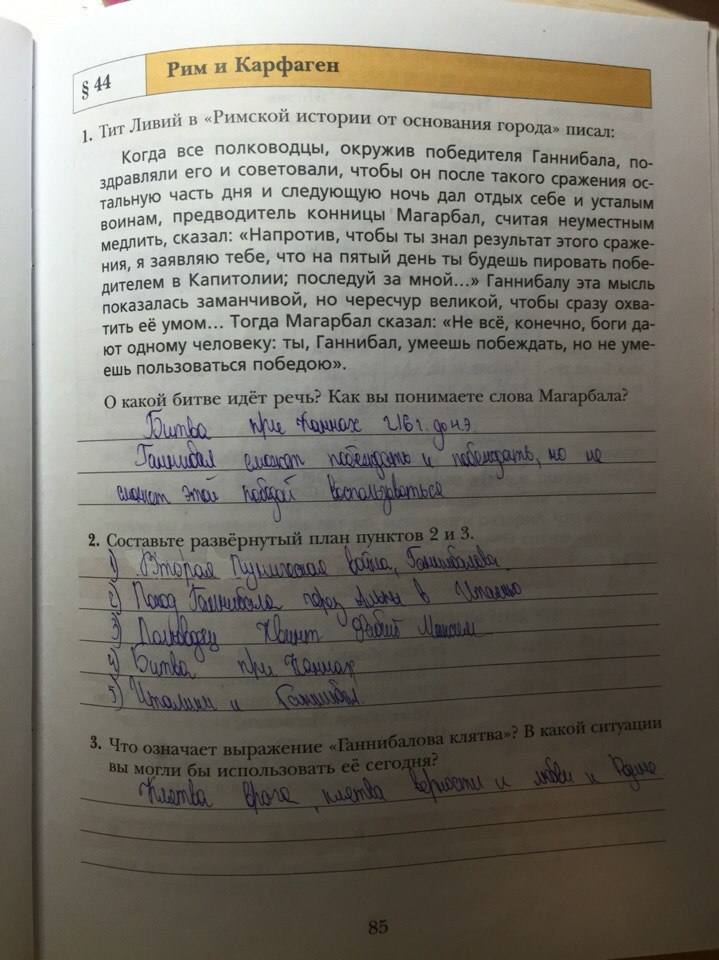 § 44
Рим и Карфаген
1. Тит Ливий в «Римской истории от основания города» писал:
Когда все полководцы, окружив победителя Ганнибала, по-
здравляли его и советовали, чтобы он после такого сражения ос-
тальную часть дня и следующую ночь дал отдых себе и усталым
воинам, предводитель конницы Магарбал, считая неуместным
медлить, сказал: «Напротив, чтобы ты знал результат этого сраже-
ния, я заявляю тебе, что на пятый день ты будешь пировать побе-
дителем в Капитолии; последуй за мной...» Ганнибалу эта мысль
показалась заманчивой, но чересчур великой, чтобы сразу охва-
тить её умом... Тогда Магарбал сказал: «Не всё, конечно, боги да-
ют одному человеку: ты, Ганнибал, умеешь побеждать, но не уме-
ешь пользоваться победою».
О какой битве идёт речь? Как вы понимаете слова Магарбала?
Битва при Каннах 216 г. до н.э
Ганнибал сможет побеждать и побеждать, но не
сможет этой победой воспользоваться
2. Составьте развёрнутый план пунктов 2 и 3.
1) Вторая Пуническая война, Ганнибалова
2) Поход Ганнибала через Альпы в Италию
3) Полководец Квинт Фабий Максим
4) Битва при Каннах
5) Италики и Ганнибал
3. Что означает выражение «Ганнибалова клятва»? В какой ситуации
вы могли бы использовать её сегодня?
Клятва врага, клятва верности и любви к Родине
85